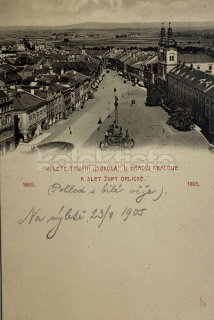 20LETÉ TRVÁNÍ „SOKOLA“ V HRADCI KRÁLOVÉ
A SLET ŽUPY ORLICKÉ.
1885. 1905.
(Pohled s bílé věže).
Na výletě 23/8 1905